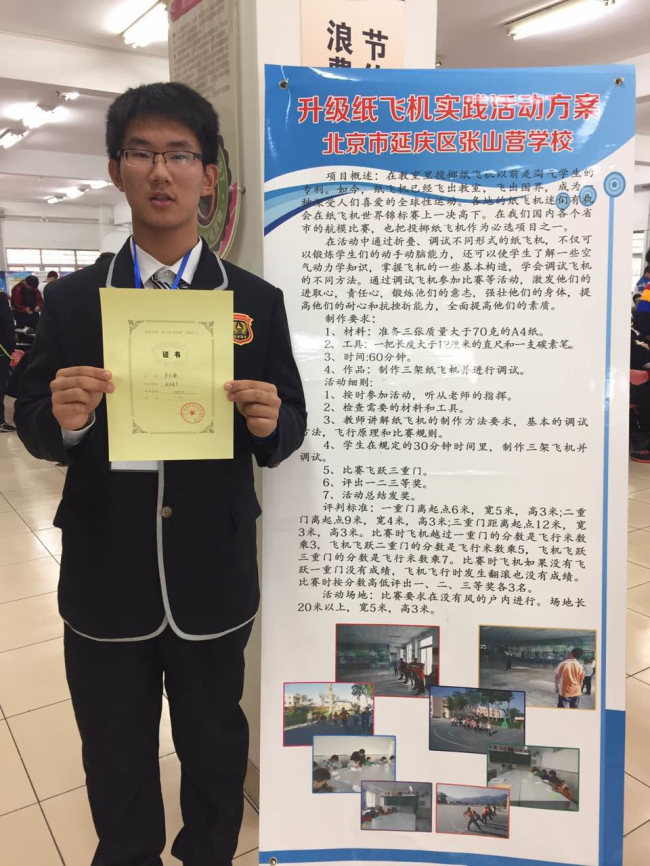 浪 节
升级纸飞机实践活动方案
北京市延庆区张山营学校
项目概述：在教室里投掷纸飞机以前是淘气学生的
专利。如今，纸飞机已经飞出教室，飞出国界，成为一
种深受人们喜爱的全球性运动。各地的纸飞机迷们有机
会在纸飞机世界锦标赛上一决高下。在我们国内各个省
市的航模比赛，也把投掷纸飞机作为必选项目之一。
在活动中通过折叠、调试不同形式的纸飞机，不仅可
以锻炼学生们的动手动脑能力，还可以使学生了解一些空
气动力学知识，掌握飞机的一些基本构造，学会调试飞机
的不同方法。通过调试飞机参加比赛等活动，激发他们的
进取心，责任心，锻炼他们的意志，强壮他们的身体，提
高他们的耐心和抗挫折能力，全面提高他们的素质。
制作要求：
1、材料：准备三张质量大于70克的A4纸。
2、工具：一把长度大于12厘米的直尺和一支碳素笔。
3、时间:60分钟。
4、作品：制作三架纸飞机并进行调试。
活动细则：
1、按时参加活动，听从老师的指挥。
2、检查需要的材料和工具。
3、教师讲解纸飞机的制作方法要求，基本的调试
方法，飞行原理和比赛规则。
4、学生在规定的30分钟时间里，制作三架飞机并
调试。
5、比赛飞跃三重门。
6、评出一二三等奖。
7、活动总结发奖。
评判标准：一重门离起点6米，宽5米，高3米;二重
门离起点9米，宽4米，高3米;三重门距离起点12米，宽
3米，高3米。比赛时飞机越过一重门的分数是飞行米数
乘3，飞机飞跃二重门的分数是飞行米数乘5，飞机飞跃
三重门的分数是飞行米数乘7。比赛时飞机如果没有飞
跃一重门没有成绩，飞机飞行时发生翻滚也没有成绩。
比赛时按分数高低评出一、二、三等奖各3名。
活动场地：比赛要求在没有风的户内进行。场地长
20米以上，宽5米，高3米。
证书